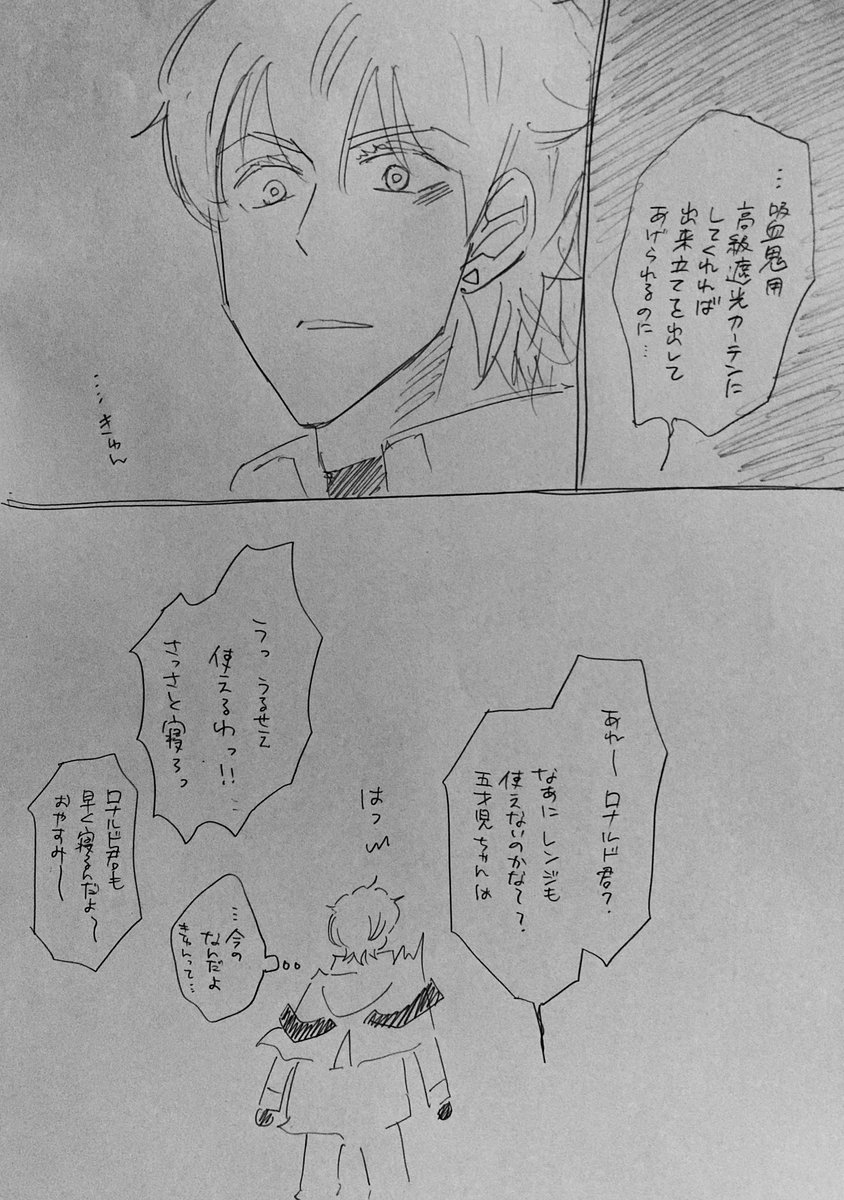 …吸血鬼用
高級遮光カーテンに
してくれれば
出来立てを出して
あげられるのに…
…きゅん
あれーロナルド君?
なあに レンジも
使えないのかなぁ?
五才児ちゃんは
はっ
うっ うるせえ
使えるわっ!!
さっさと寝ろっ
…今の
なんだよ
きゅんって…
ロナルド君も
早く寝るんだよ〜
おやすみ〜